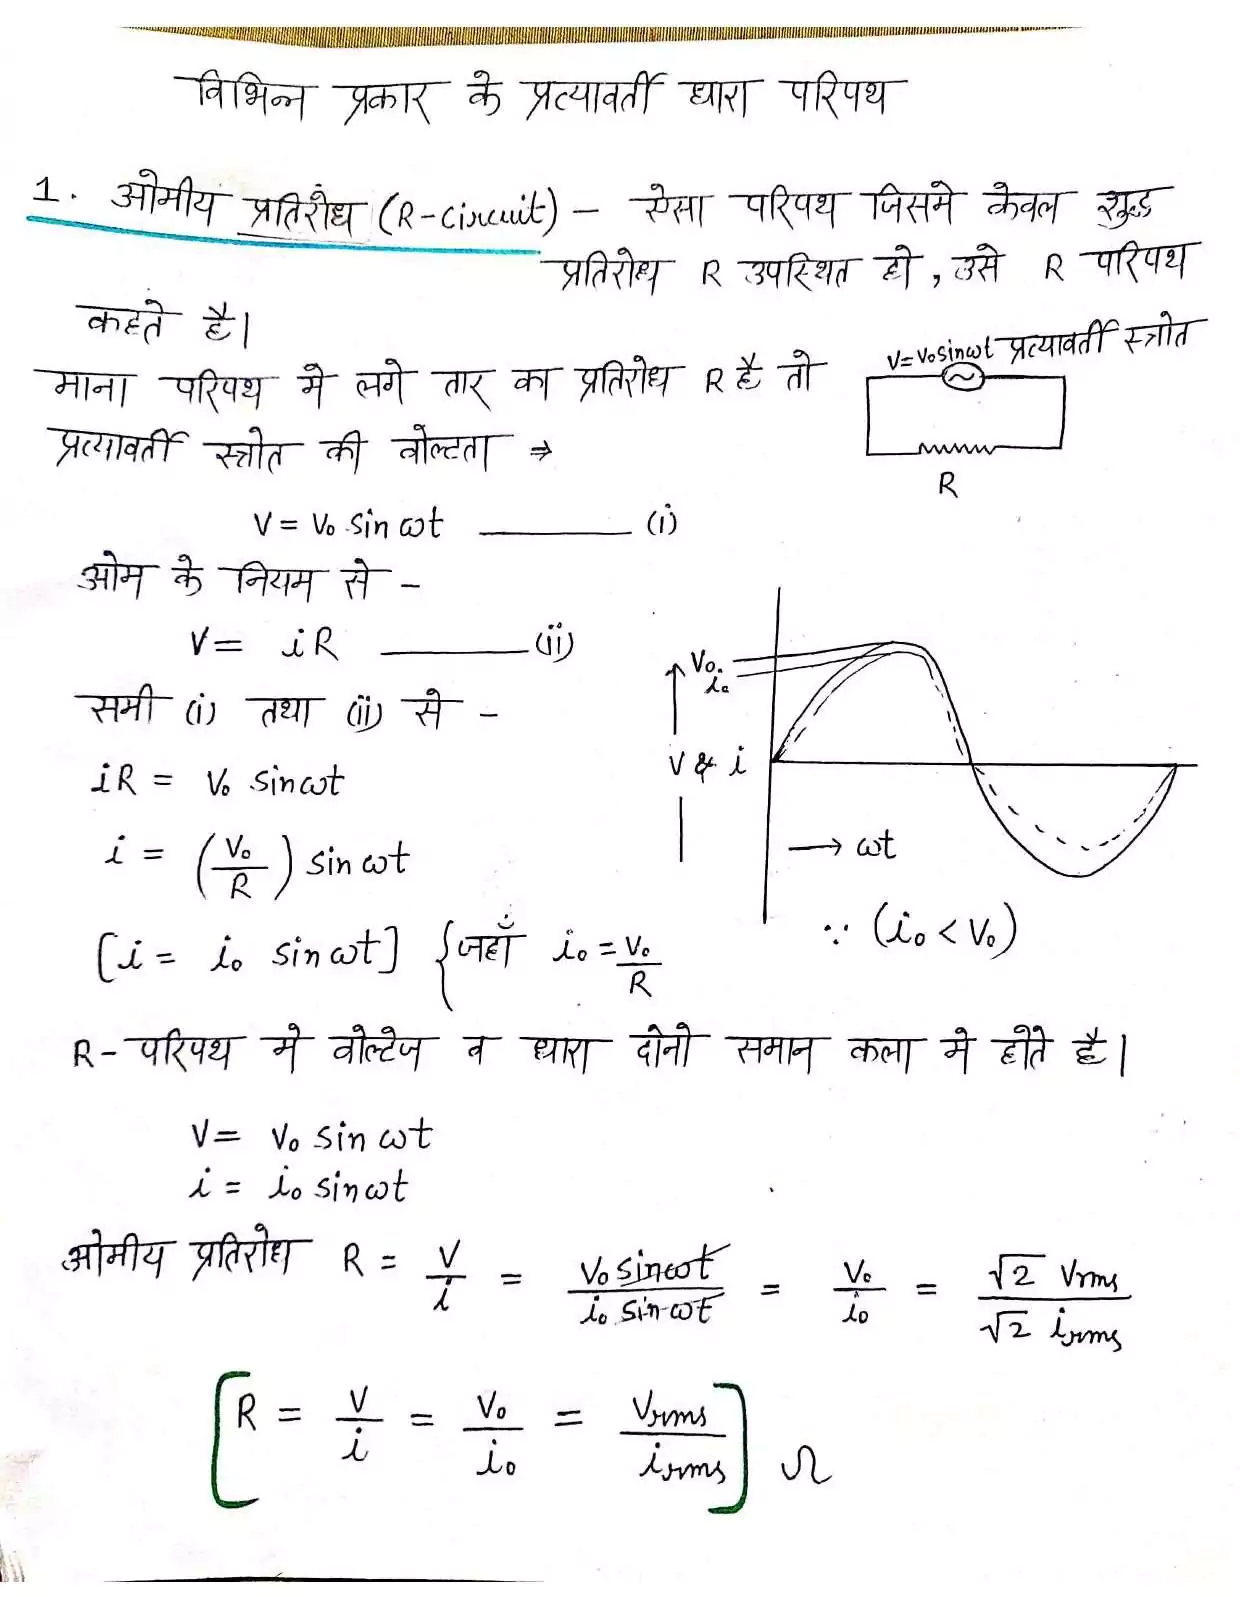 विभिन्न प्रकार के प्रत्यावर्ती धारा परिपथ
1. ओमीय प्रतिरोध (R-circuit) - ऐसा परिपथ जिसमे केवल शुद्ध
प्रतिरोध R उपस्थित हो, उसे R परिपथ
कहते है।
V=V₀sinωt प्रत्यावर्ती स्त्रोत
R
माना परिपथ मे लगे तार का प्रतिरोध R है तो
प्रत्यावर्ती स्त्रोत की वोल्टता ⇒
V = V₀ sin ωt ——— (i)
ओम के नियम से -
V = iR ——— (ii)
समी (i) तथा (ii) से -
iR = V₀ sinωt
i = (V₀/R) sin ωt
[i = i₀ sin ωt] {जहाँ i₀ = V₀/R
V₀
i₀
V & i
→ ωt
∵ (i₀ < V₀)
R- परिपथ मे वोल्टेज व धारा दोनो समान कला मे होते है।
V = V₀ sin ωt
i = i₀ sin ωt
ओमीय प्रतिरोध R = V/i = V₀ sinωt/i₀ sin ωt = V₀/i₀ = √2 Vrms/√2 irms
[R = V/i = V₀/i₀ = Vrms/irms] Ω